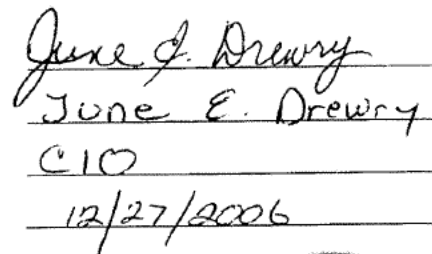 June E. Drewry
June E. Drewry
CIO
12/27/2006